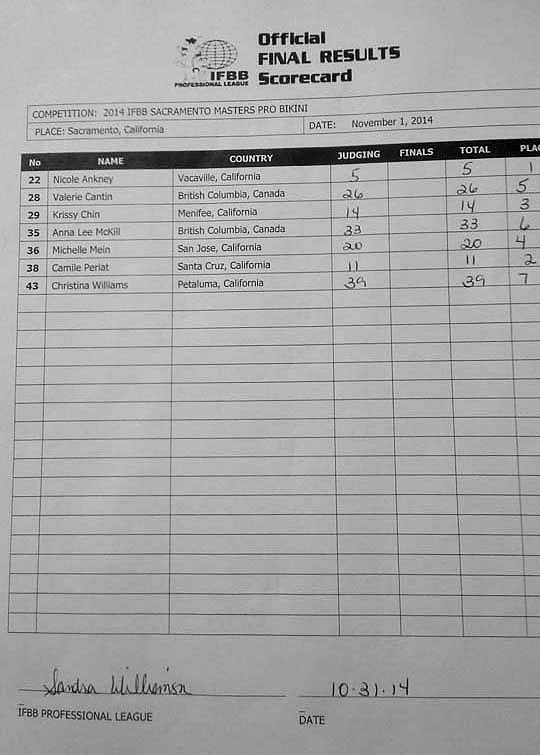 Official
FINAL RESULTS
IFBB Scorecard
PROFESSIONAL LEAGUE
COMPETITION: 2014 IFBB SACRAMENTO MASTERS PRO BIKINI
PLACE: Sacramento, California DATE: November 1, 2014
No NAME COUNTRY JUDGING FINALS TOTAL PLAC
22 Nicole Ankney Vacaville, California 5 5 1
28 Valerie Cantin British Columbia, Canada 26 26 5
29 Krissy Chin Menifee, California 14 14 3
35 Anna Lee McKill British Columbia, Canada 33 33 6
36 Michelle Mein San Jose, California 20 20 4
38 Camile Periat Santa Cruz, California 11 11 2
43 Christina Williams Petaluma, California 39 39 7
Sandra Williamson 10·31·14
IFBB PROFESSIONAL LEAGUE DATE